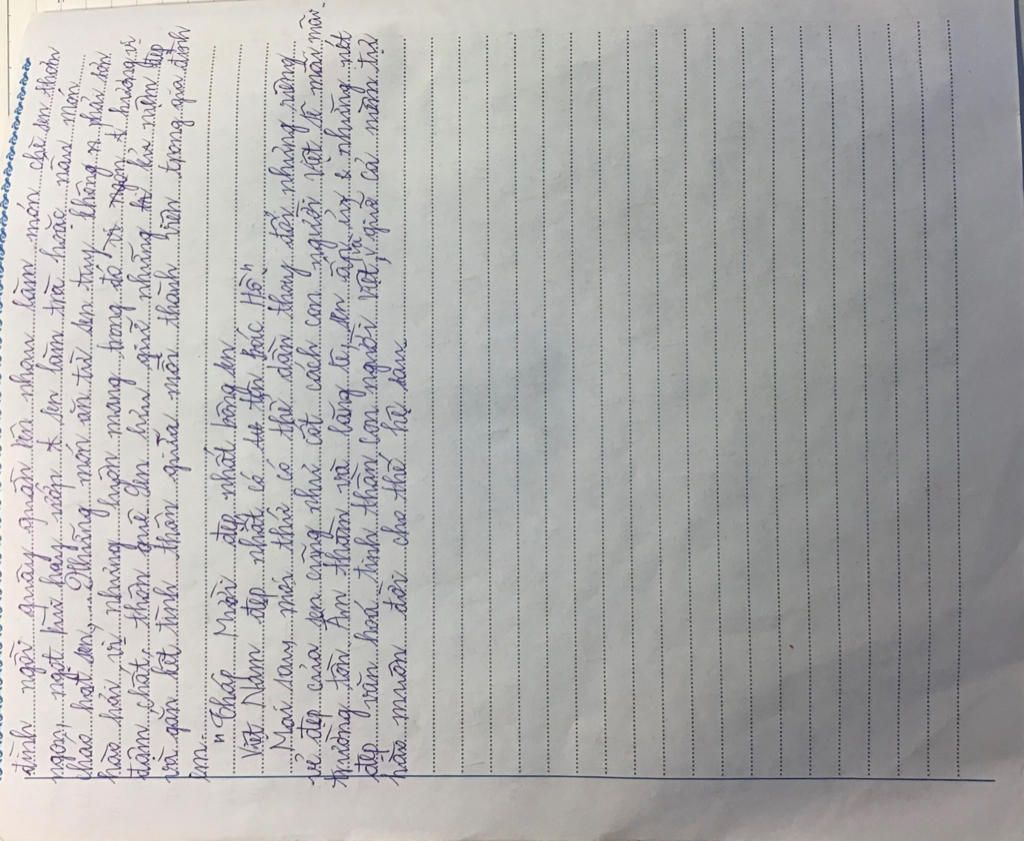 đình ngồi quây quần bên nhau làm món chè sen thơm
ngon, ngọt bùi hay ướp trà sen làm trà hoặc nấu món
cháo hạt sen,... Những món ăn từ sen tuy không n phải sơn
hào hải vị nhưng luôn mang trong đó vị hương vị
đậm chất thôn quê gắn liền giữa những kỉ niệm đẹp
và gắn kết tình thân giữa mỗi thành viên trong gia đình
em.
" Tháp Mười đẹp nhất bông sen
Việt Nam đẹp nhất có tên Bác Hồ "
Mai sau, mọi thứ có thể dần thay đổi nhưng riêng
vẻ đẹp của sen cũng như cốt cách con người Việt sẽ mãi mãi
trường tồn. Âm thầm và lặng lẽ, sen ấp ủ những nét
đẹp văn hoá tinh thần con người Việt, và giữ cả niềm tự
hào muôn đời cho thế hệ sau.